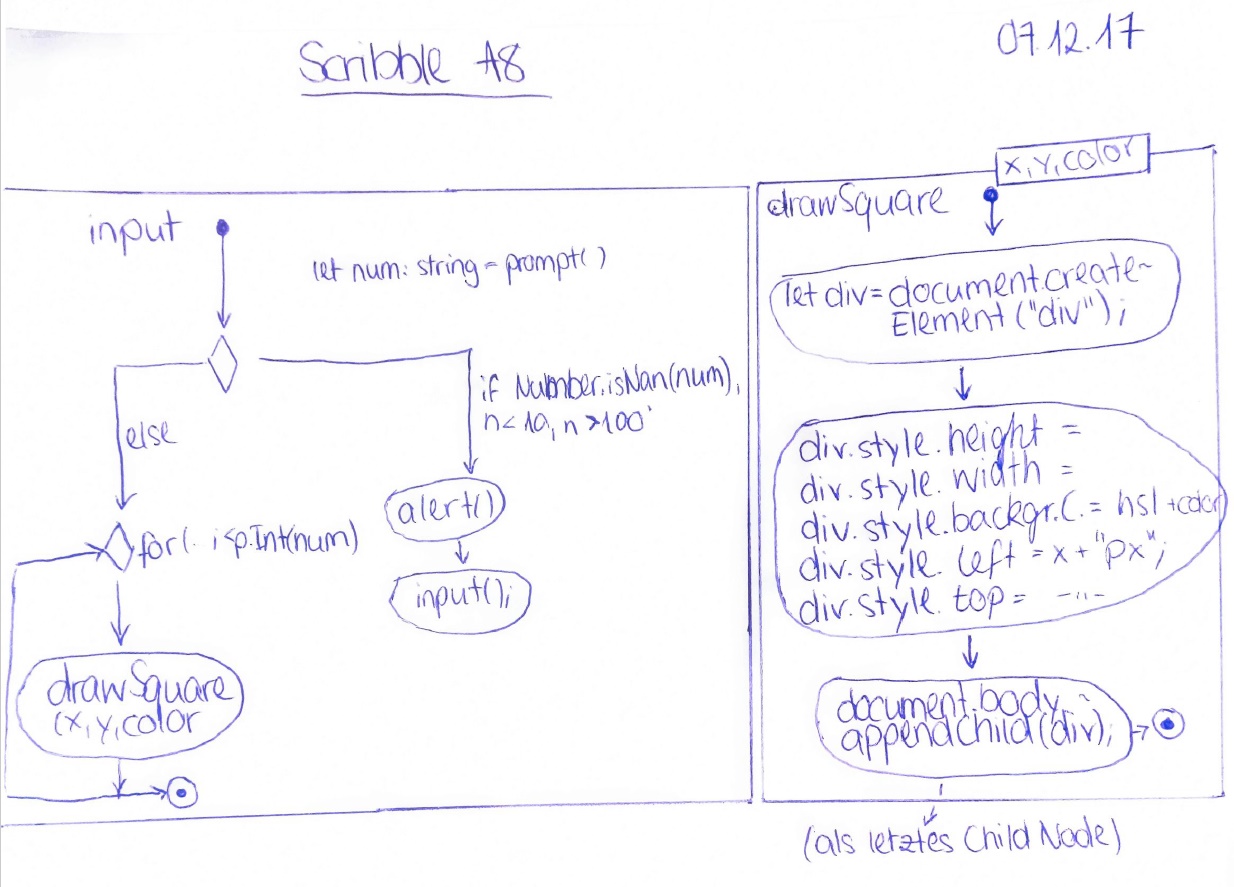 Scribble A8
07.12.17
input
let num: string = prompt()
if Number.isNan(num),
n < 10, n > 100
else
for(.. i<p.Int(num)
alert()
input();
drawSquare
(x,y,color
x,y,color
drawSquare
let div = document.create-
Element ("div");
div.style.height =
div.style.width =
div.style.backgr.C. = hsl + color
div.style.left = x + "px";
div.style.top = -"-
document.body.
appendChild(div);
(als letztes Child Node)